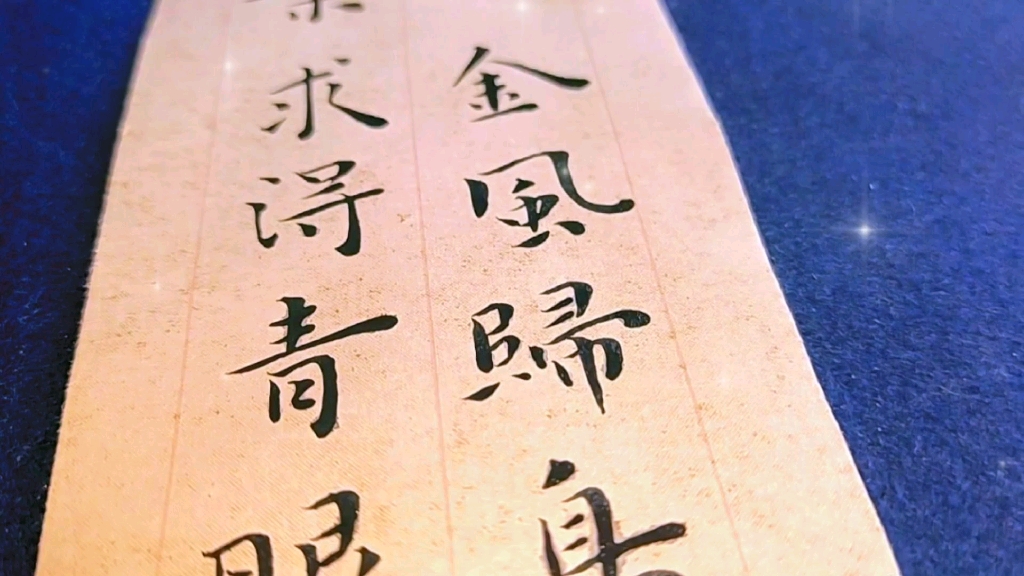 金風歸身
求得青眼